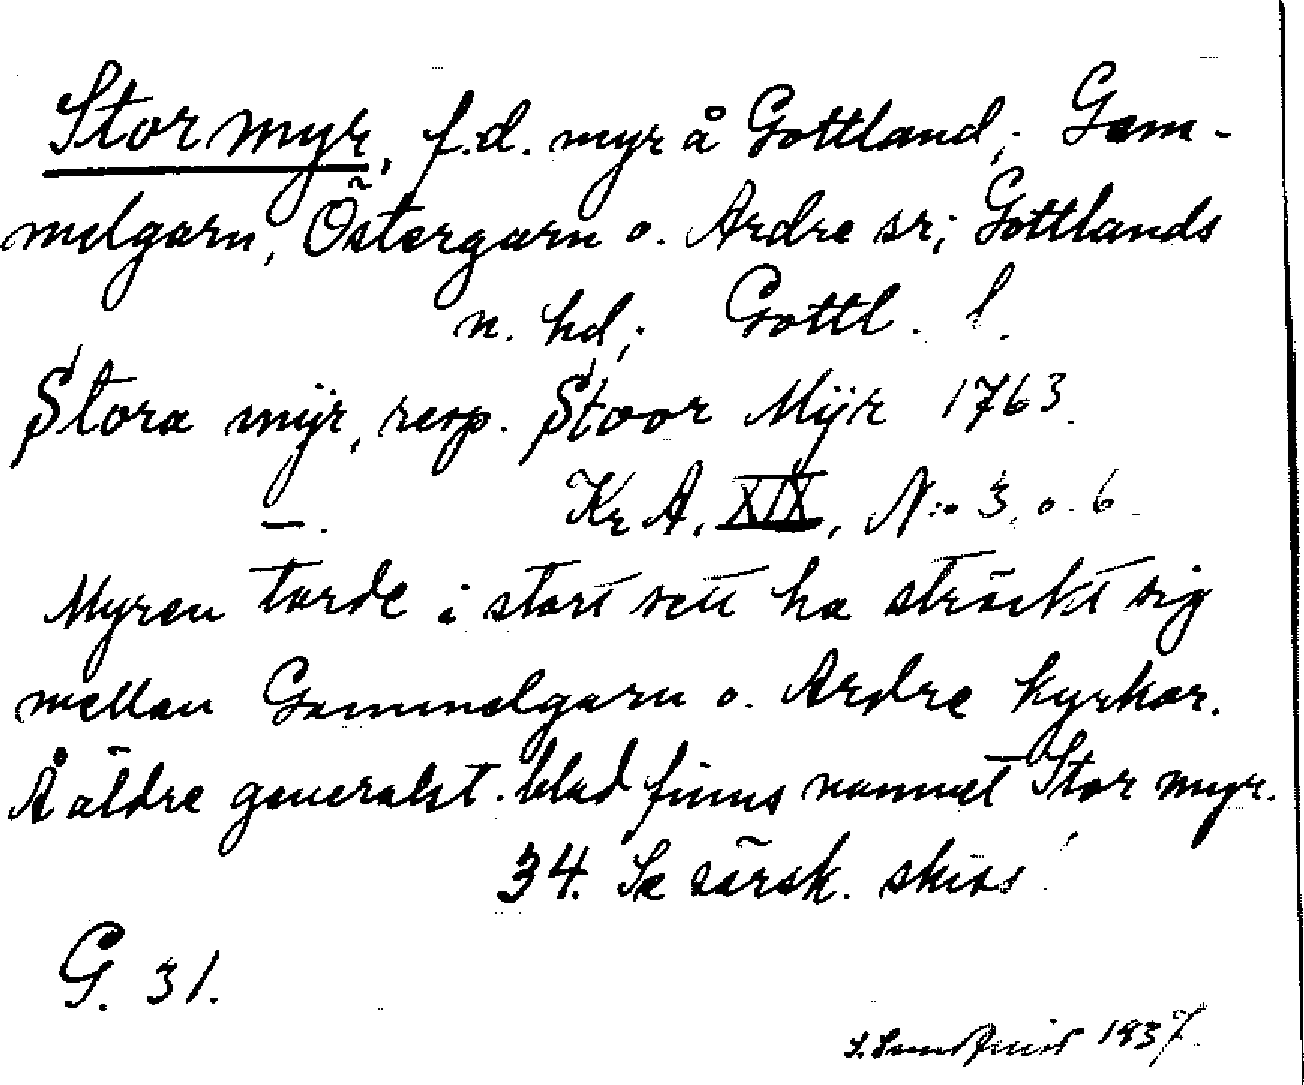 Stor myr, f.d. myr å Gottland; Gam-
melgarn, Östergarn o. Ardre sr; Gottlands
n. hd; Gottl. l.
Stora mÿr, resp. Stoor Mÿr 1763.
—. Kr A. XIX, N:o 3, o. 6
Myren torde i stort sett ha sträckt sig
mellan Gammelgarn o. Ardre kyrkor.
Å äldre generalst. blad finns namnet Stor myr.
34. Se särsk. skiss!
G. 31.
1937.